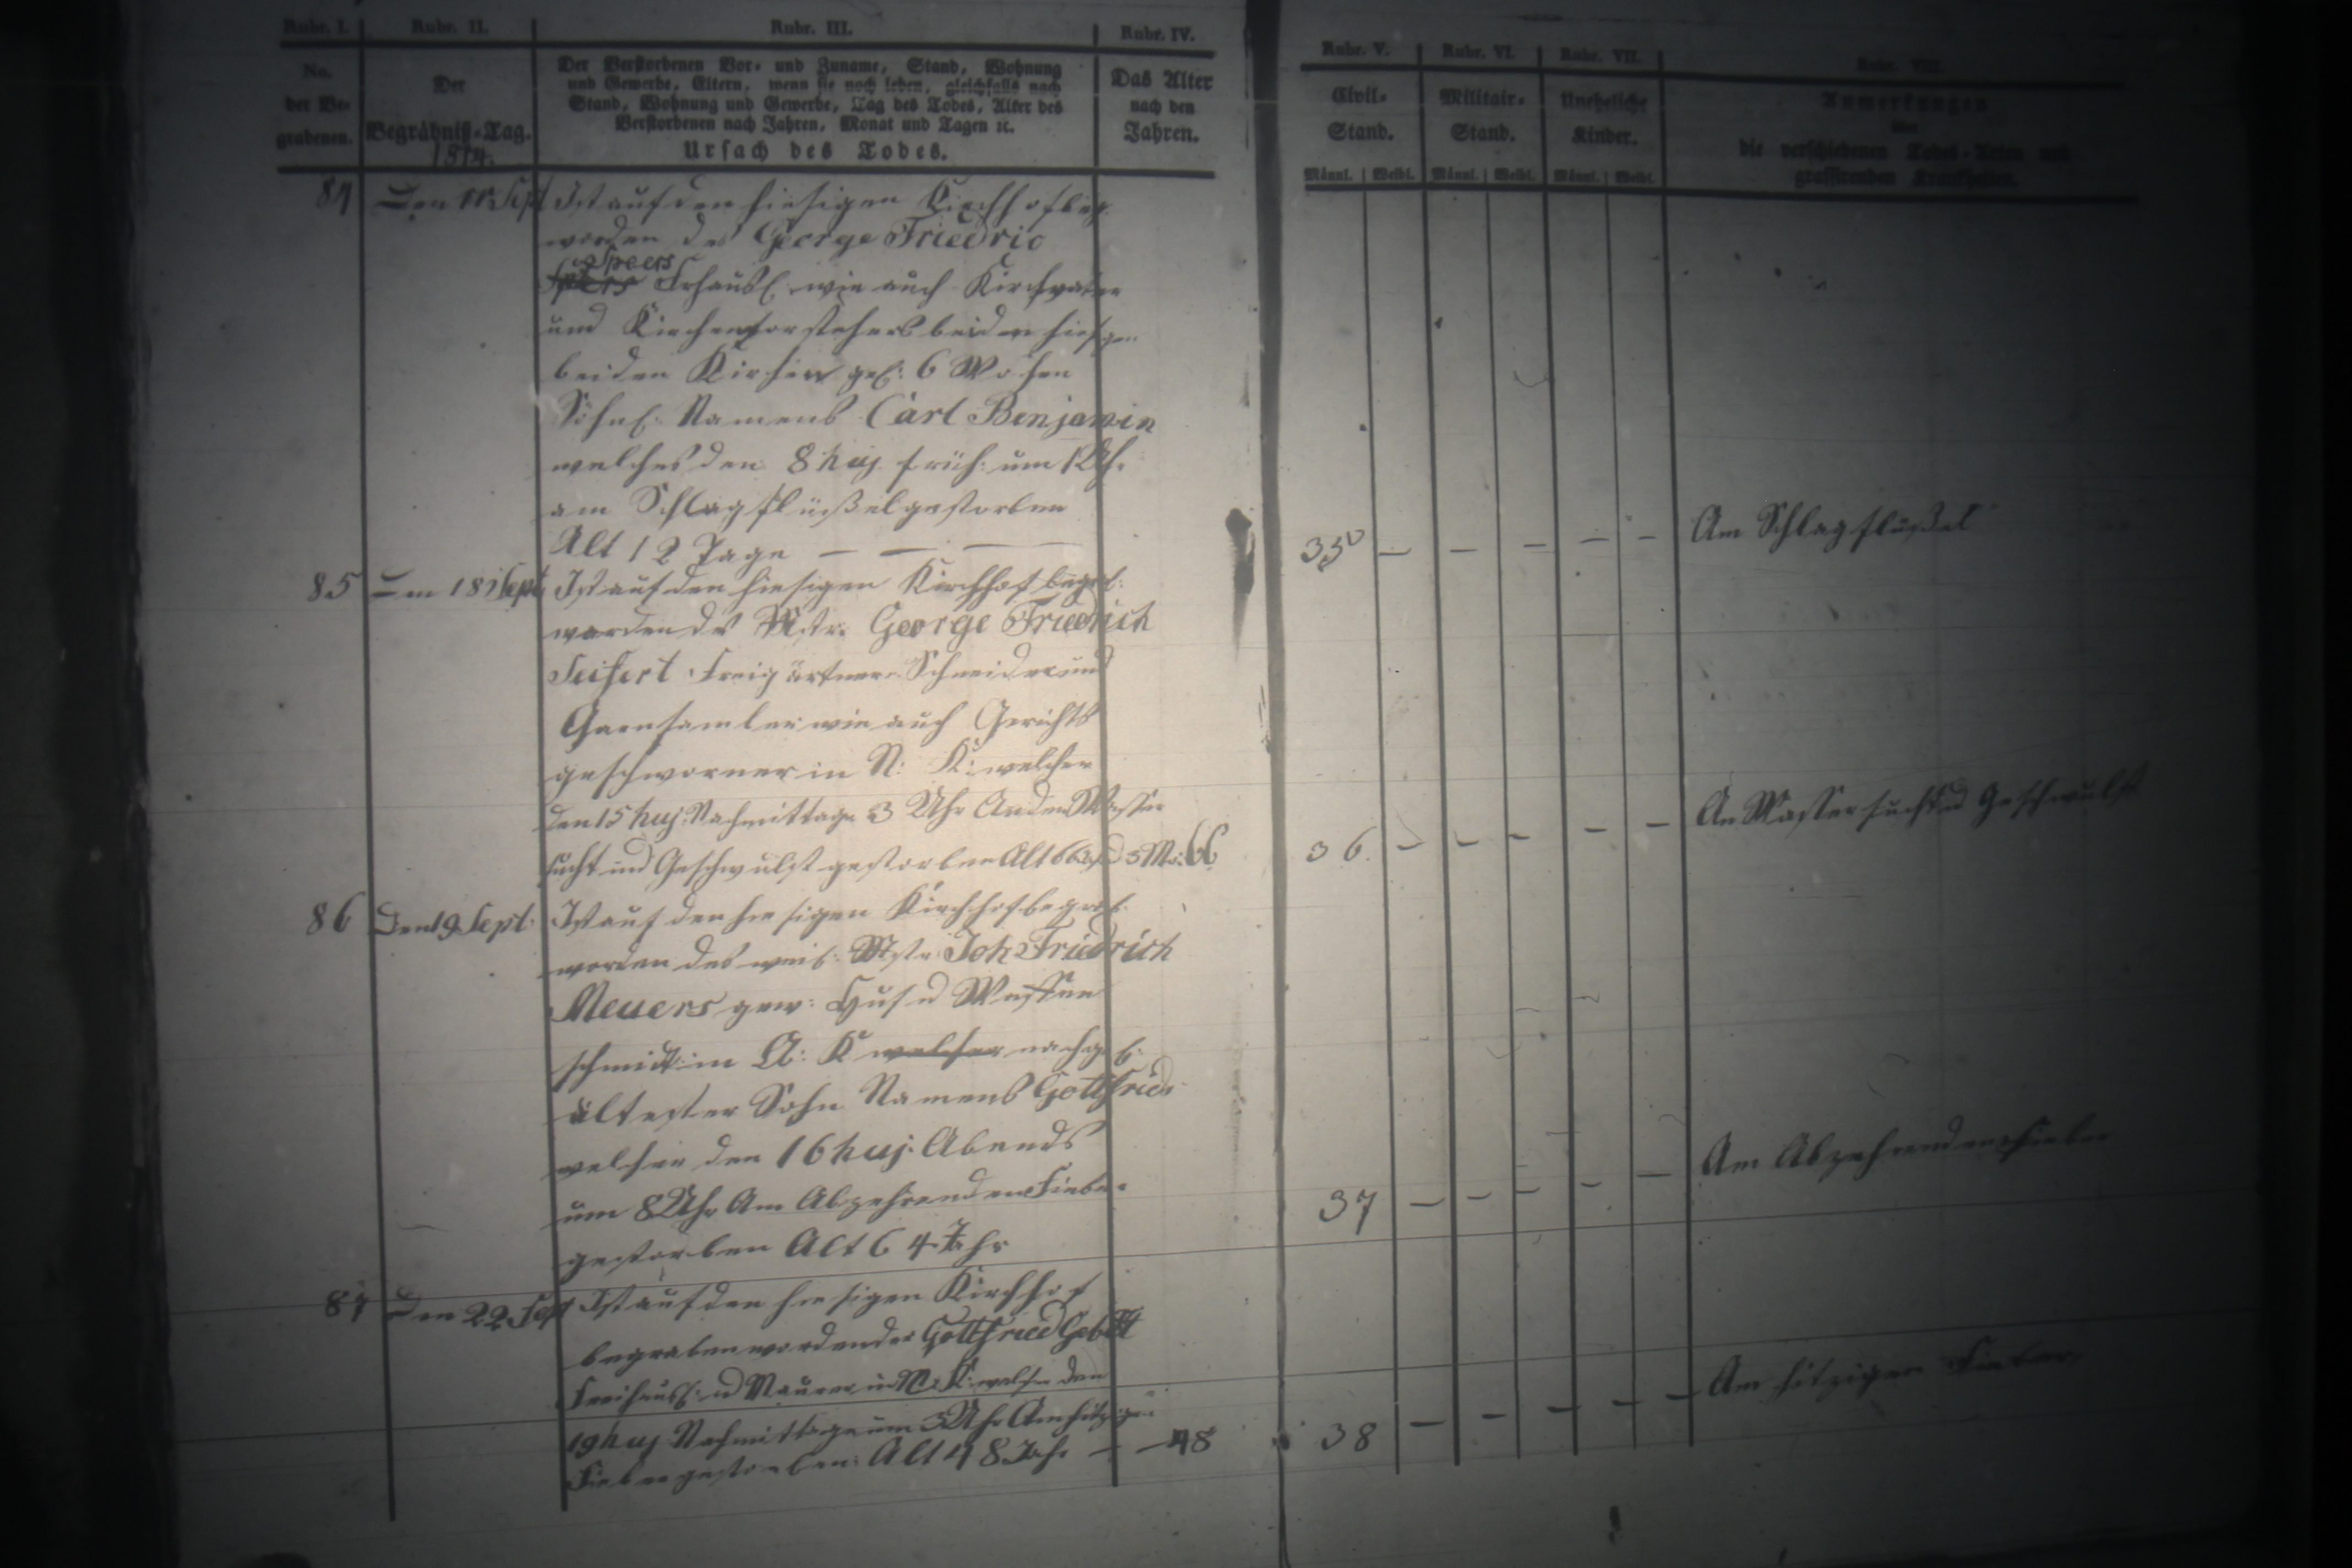 Rubr. I. Rubr. II. Rubr. III. Rubr. IV. Rubr. V. Rubr. VI. Rubr. VII. Rubr. VIII.
No. der Be- grabenen.
Der Begräbniß-Tag. 1814.
Der Verstorbenen Vor- und Zuname, Stand, Wohnung
und Gewerbe, Eltern, wenn sie noch leben, gleichfalls nach
Stand, Wohnung und Gewerbe, Tag des Todes, Alter des
Verstorbenen nach Jahren, Monat und Tagen ꝛc.
Ursach des Todes.
Das Alter nach den Jahren.
Civil-Stand.
Militair-Stand.
Uneheliche Kinder.
Anmerkungen
über
die verschiedenen Todes-Arten und
grassirenden Krankheiten.
Männl. Weibl. Männl. Weibl. Männl. Weibl.
84 Den 11 Sept Ist auf den hiesigen Kirchhof begr.
worden des George Friedric
Speers
Frhausl wie auch Kirchvater
und Kirchenvorstehers bei den hiesgen
beiden Kirchen 6 Wochen
Söhnl: Namens Carl Benjamin
welches den 8 huj. früh: um 1 Uh.
am Schlagflüßel gestorben
Alt 12 Tage — — — 35 — — — — — Am Schlagflußel
85 Den 18 Sept Ist auf den hiesigen Kirchhof begrab:
worden des Mstr. George Friedrich
Seifert Freigärtner Schneider und
Garnsamler wie auch Gerichts
geschworner in N: K: welcher
den 15 huj: Nachmittage 3 Uhr An der Wasser
sucht und Geschwulst gestorben Alt 66 3 Mo: 66 36. — — — — — An Wassersucht u Geschwulst
86 Den 19 Sept: Ist auf den hiesigen Kirchhof begrab:
worden des weil: Mstr: Joh Friedrich
Meuers gew: Huf u Waffen
schmidt in A: K welcher nachgel:
ältester Sohn Namens Gottfried
welcher den 16 huj: Abends
um 8 Uhr Am Abzehrenden Fieber
gestorben Alt 64 Jahr 37 — — — — — Am Abzehrenden Fieber
87 Den 22 Sept Ist auf den hiesigen Kirchhof
begraben worden der Gottfried
Freihausl: u Maurer in N: K: welcher den
19 huj Nachmittage um 3 Uhr Am hitzigen
Fieber gestorben: Alt 48 Jahr — — 48 38 — — — — — Am hitzigen Fieber